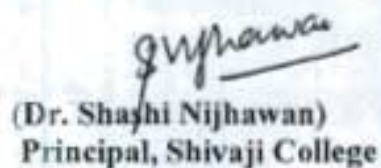 (Dr. Shashi Nijhawan)
Principal, Shivaji College